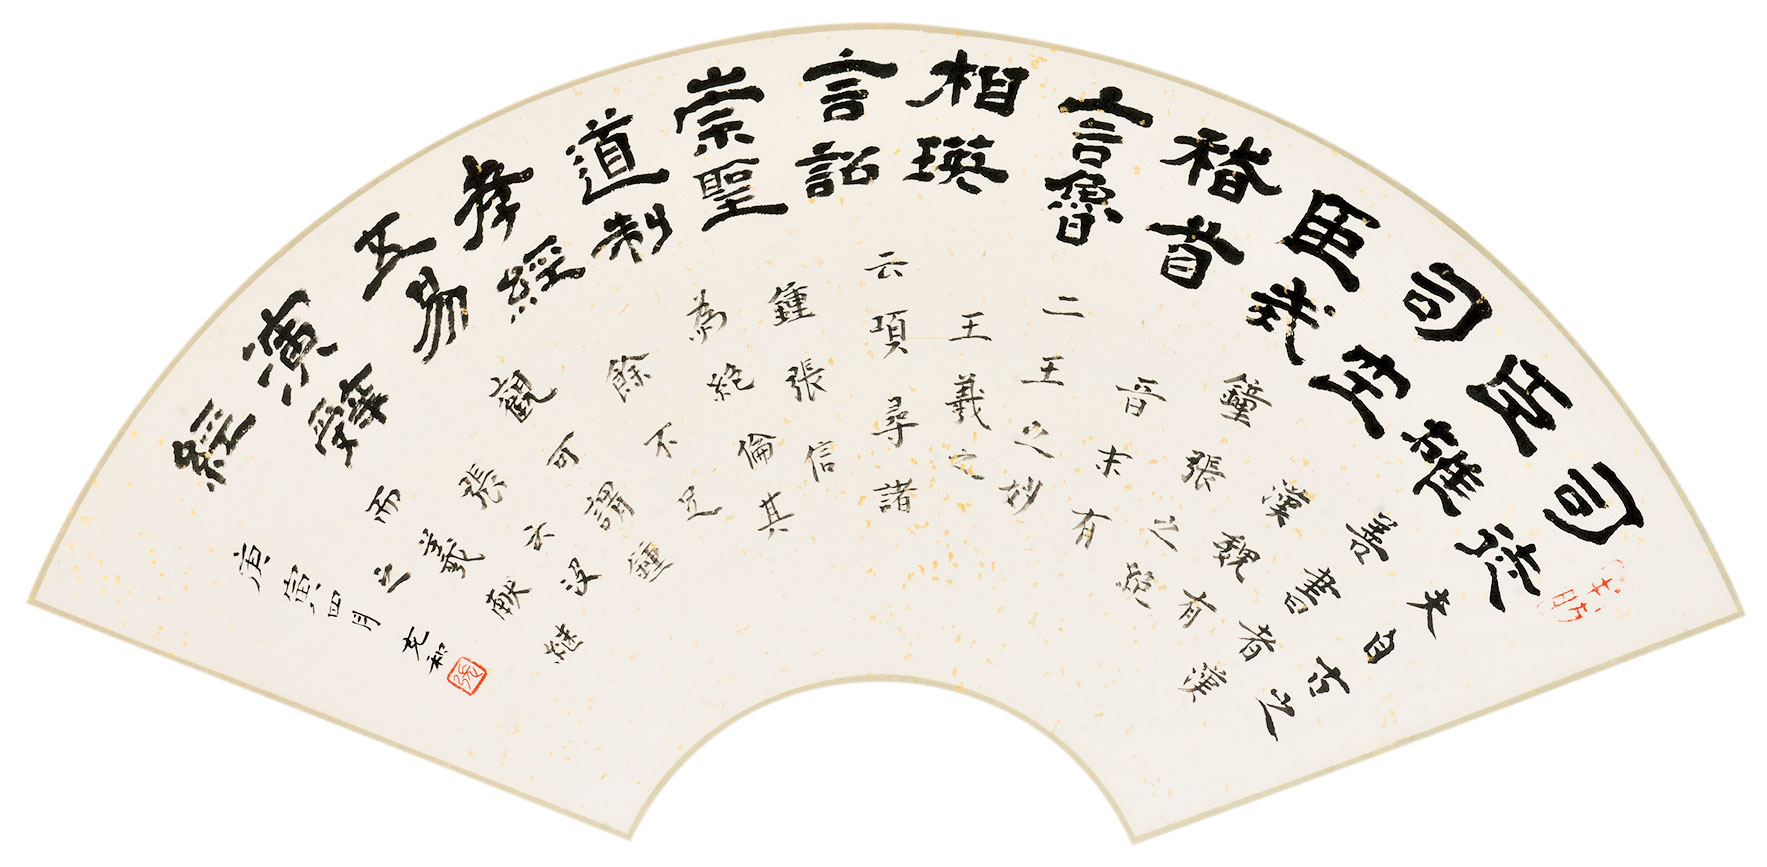 司徒
臣雄
司空
臣戒
稽首
言魯
相瑛
言詔
崇聖
道制
孝經
五易
演辤
經
夫自古之
善書者漢
漢魏有
鐘張之絕
晉末有
二王之妙
王羲之
云頃尋諸
鍾張信
為絕倫其
餘不足
觀可謂鍾
張云沒
而羲獻繼
之
庚寅四月 充和